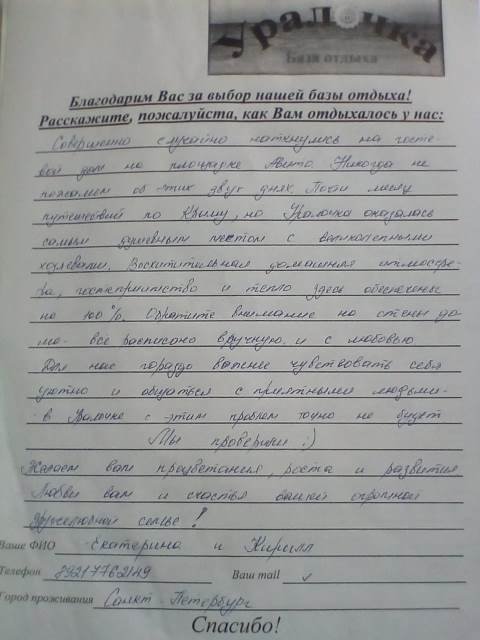 Уралочка
База отдыха
Благодарим Вас за выбор нашей базы отдыха!
Расскажите, пожалуйста, как Вам отдыхалось у нас:
Совершенно случайно наткнулись на госте-
вой дом на площадке Авито. Никогда не
пожалеем об этих двух днях.
путешествий по Крыму, но Уралочка оказалась
самым душевным местом с великолепными
хозяевами. Восхитительная домашняя атмосфе-
ра, гостеприимство и тепло здесь обеспечены
на 100%. Обратите внимание на стены до-
ма - все расписано вручную и с любовью
Для нас гораздо важнее чувствовать себя
уютно и общаться с приятными людьми -
в Уралочке с этим проблем точно не будет
Мы проверили :)
Желаем вам процветания, роста и развития
Любви вам и счастья вашей огромной
дружелюбной семье!
Ваше ФИО Екатерина и Кирилл
Телефон 89217762149 Ваш mail
Город проживания Санкт-Петербург
Спасибо!